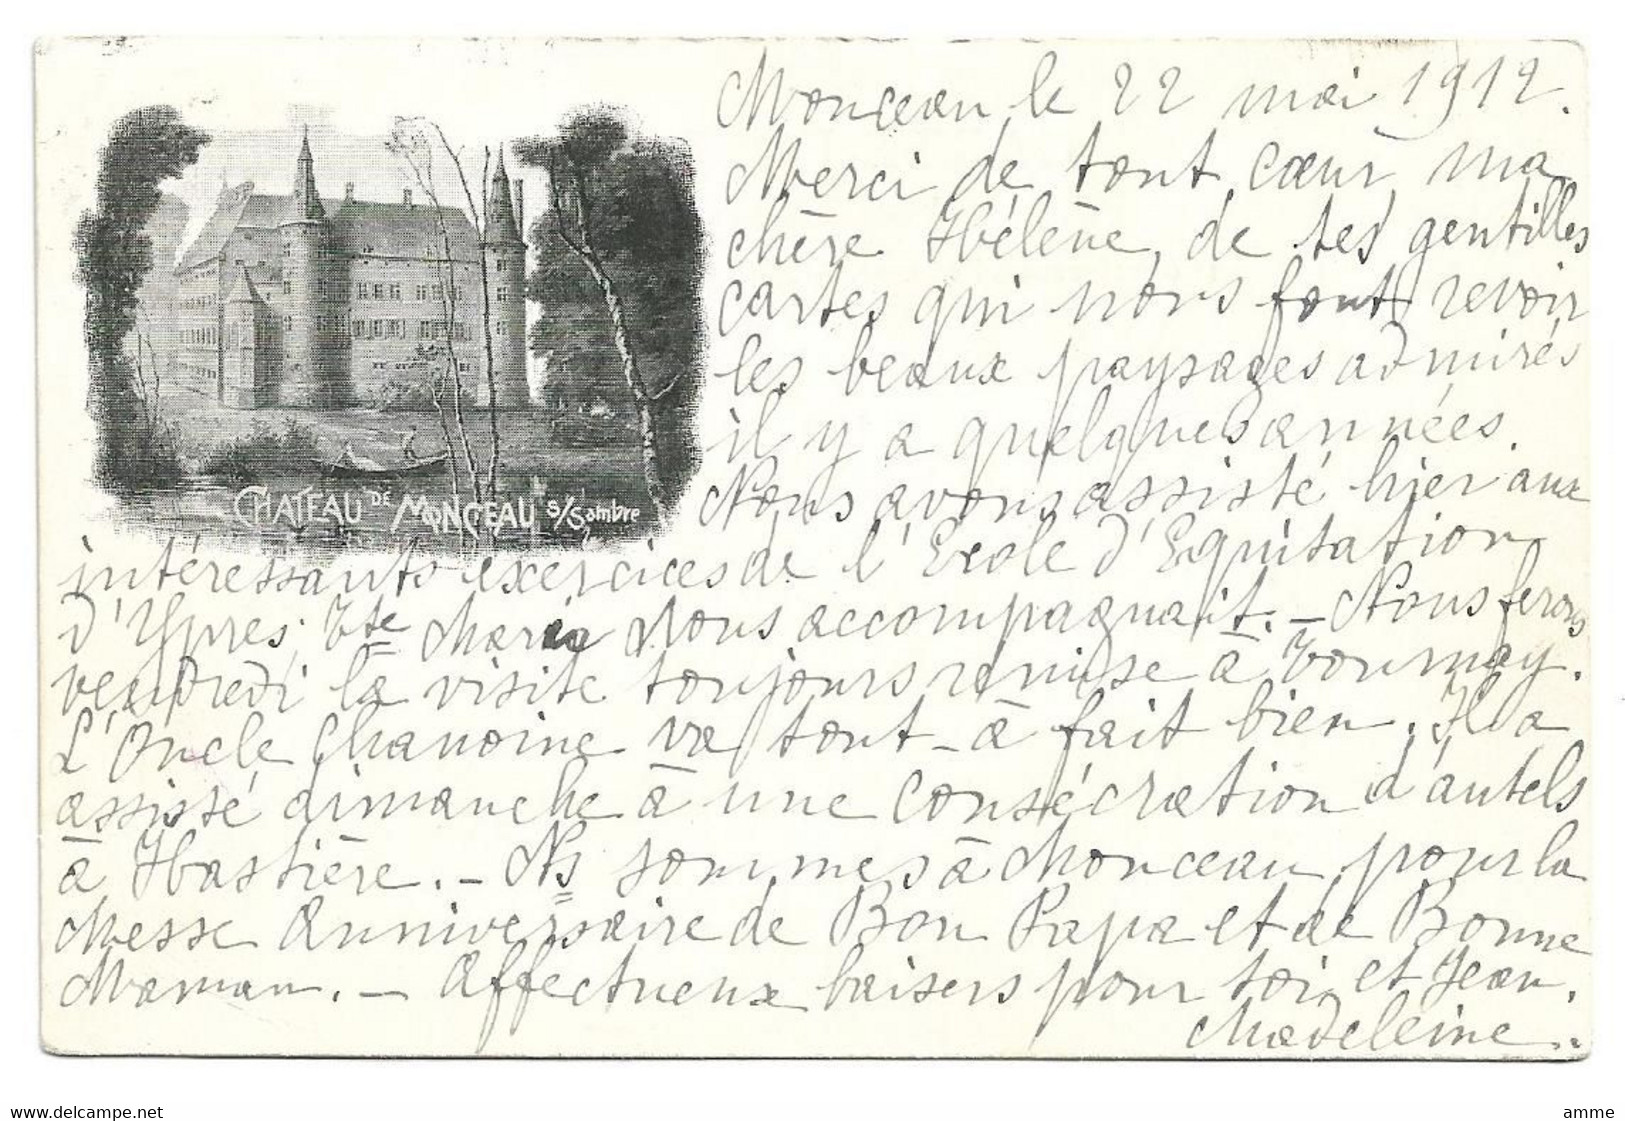 Monceau le 22 mai 1912.
Merci de tout cœur, ma
chère Hélène, de tes gentilles
cartes qui nous font revoir
les beaux paysages admirés
il y a quelques années.
Nous avons assisté hier aux
CHATEAU DE MONCEAU S/Sambre
intéressants exercices de l'Ecole d'Equitation
d'Ypres; Tte Marie nous accompagnait. — Nous ferons
vendredi la visite toujours remise à Tournay.
L'Oncle Chanoine va tout-à fait bien. Il a
assisté dimanche à une consécration d'autels
à Hastière. — Ns sommes à Monceau pour la
Messe Anniversaire de Bon Papa et de Bonne
Maman. — Affectueux baisers pour toi et Jean.
Madeleine..
www.delcampe.net
amme